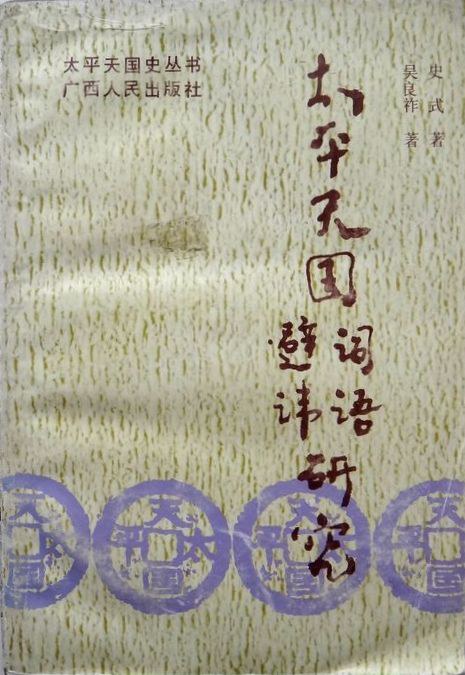 太平天国史丛书
广西人民出版社
史式 著
吴良祚 著
太平天国
词语
避讳
研究
太平天囯
太平天囯
太平天囯
太平天囯